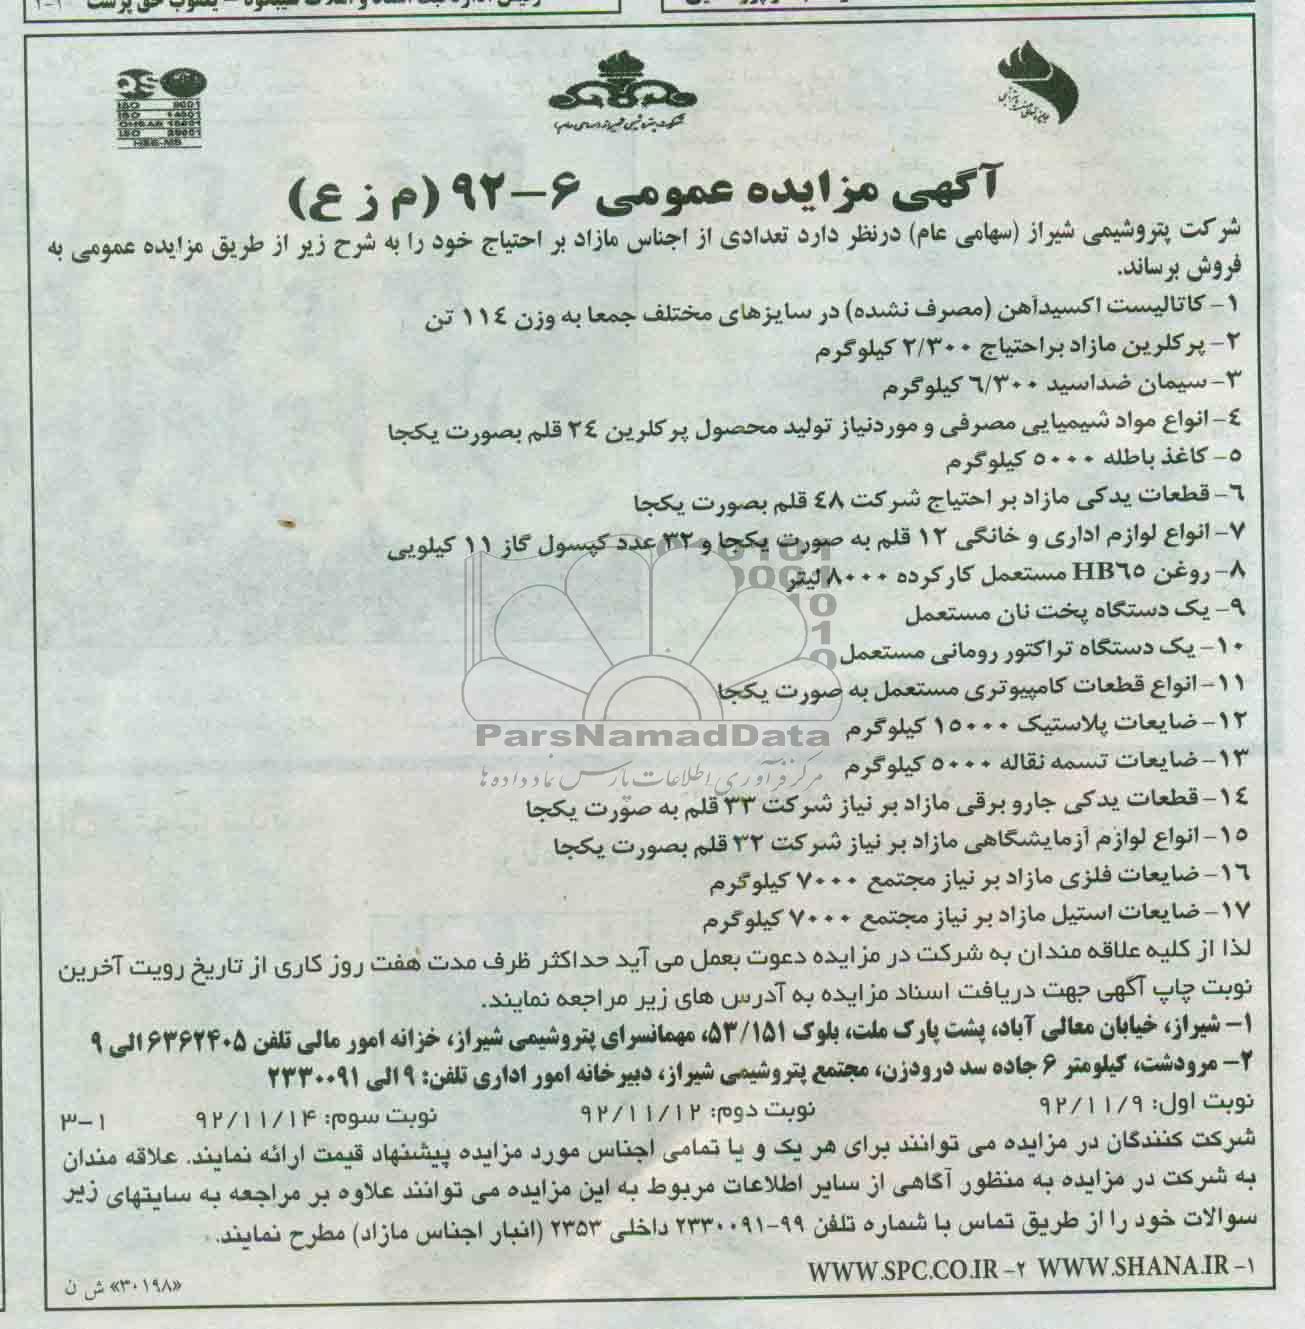 ISO 9001
ISO 14001
OHSAS 18001
ISO 29001
HSE-MS
شرکت پتروشیمی شیراز (سهامی عام)
آگهی مزایده عمومی ۶-۹۲ (م ز ع)
شرکت پتروشیمی شیراز (سهامی عام) درنظر دارد تعدادی از اجناس مازاد بر احتیاج خود را به شرح زیر از طریق مزایده عمومی به
فروش برساند.
۱- کاتالیست اکسیدآهن (مصرف نشده) در سایزهای مختلف جمعا به وزن ۱۱٤ تن
۲- پرکلرین مازاد براحتیاج ۲/۳۰۰ کیلوگرم
۳- سیمان ضداسید ٦/۳۰۰ کیلوگرم
٤- انواع مواد شیمیایی مصرفی و موردنیاز تولید محصول پرکلرین ۲٤ قلم بصورت یکجا
۵- کاغذ باطله ۵۰۰۰ کیلوگرم
٦- قطعات یدکی مازاد بر احتیاج شرکت ٤۸ قلم بصورت یکجا
۷- انواع لوازم اداری و خانگی ۱۲ قلم به صورت یکجا و ۳۲ عدد کپسول گاز ۱۱ کیلویی
۸- روغن HB٦٥ مستعمل کارکرده ۸۰۰۰ لیتر
۹- یک دستگاه پخت نان مستعمل
۱۰- یک دستگاه تراکتور رومانی مستعمل
۱۱- انواع قطعات کامپیوتری مستعمل به صورت یکجا
۱۲- ضایعات پلاستیک ۱۵۰۰۰ کیلوگرم
ParsNamadData
۱۳- ضایعات تسمه نقاله ۵۰۰۰ کیلوگرم
مرکز فرآوری اطلاعات پارس نماد داده ها
۱٤- قطعات یدکی جارو برقی مازاد بر نیاز شرکت ۳۳ قلم به صورت یکجا
۱۵- انواع لوازم آزمایشگاهی مازاد بر نیاز شرکت ۳۲ قلم بصورت یکجا
۱٦- ضایعات فلزی مازاد بر نیاز مجتمع ۷۰۰۰ کیلوگرم
۱۷- ضایعات استیل مازاد بر نیاز مجتمع ۷۰۰۰ کیلوگرم
لذا از کلیه علاقه مندان به شرکت در مزایده دعوت بعمل می آید حداکثر ظرف مدت هفت روز کاری از تاریخ رویت آخرین
نوبت چاپ آگهی جهت دریافت اسناد مزایده به آدرس های زیر مراجعه نمایند.
۱- شیراز، خیابان معالی آباد، پشت پارک ملت، بلوک ۵۳/۱۵۱، مهمانسرای پتروشیمی شیراز، خزانه امور مالی تلفن ۶۳۶۲۴۰۵ الی ۹
۲- مرودشت، کیلومتر ۶ جاده سد درودزن، مجتمع پتروشیمی شیراز، دبیرخانه امور اداری تلفن: ۹ الی ۲۳۳۰۰۹۱
نوبت اول: ۹۲/۱۱/۹ نوبت دوم: ۹۲/۱۱/۱۲ نوبت سوم: ۹۲/۱۱/۱۴ ۳-۱
شرکت کنندگان در مزایده می توانند برای هر یک و یا تمامی اجناس مورد مزایده پیشنهاد قیمت ارائه نمایند. علاقه مندان
به شرکت در مزایده به منظور آگاهی از سایر اطلاعات مربوط به این مزایده می توانند علاوه بر مراجعه به سایتهای زیر
سوالات خود را از طریق تماس با شماره تلفن ۹۹-۲۳۳۰۰۹۱ داخلی ۲۳۵۳ (انبار اجناس مازاد) مطرح نمایند.
۱- WWW.SHANA.IR ۲- WWW.SPC.CO.IR
«۳۰۱۹۸» ش ن